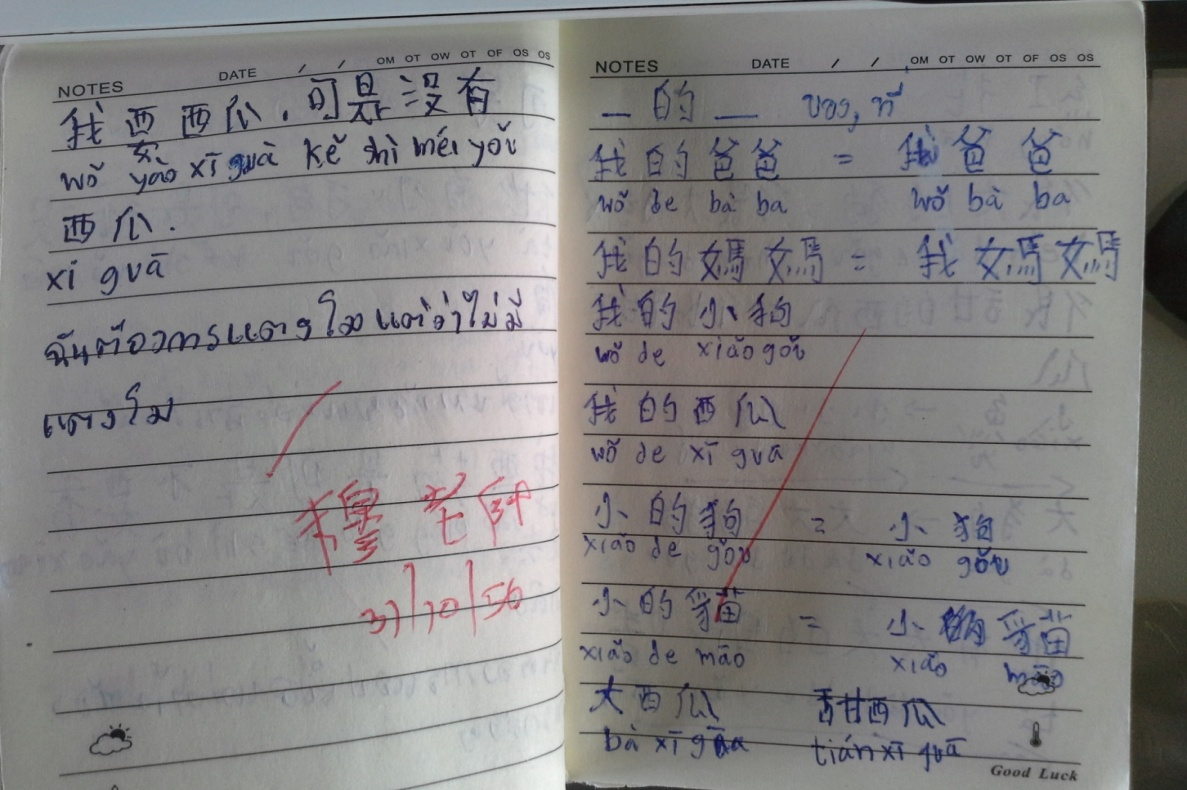 NOTES DATE / / OM OT OW OT OF OS OS
我要西瓜.可是没有
wǒ yào xī guà kě shì méi yǒu
西瓜.
xī guā
ฉันต้องการแตงโม แต่ว่าไม่มี
แตงโม
老師
31/10/56
NOTES DATE / / OM OT OW OT OF OS OS
_ 的 _ ของ, ที่
我的爸爸 = 我爸爸
wǒ de bà ba wǒ bà ba
我的媽媽 = 我媽媽
我的小狗
wǒ de xiǎo gǒu
我的西瓜
wǒ de xī guā
小的狗 = 小狗
xiǎo de gǒu xiǎo gǒu
小的貓 = 小貓
xiǎo de māo xiǎo māo
大西瓜 甜西瓜
bà xī guā tián xī guā
Good Luck